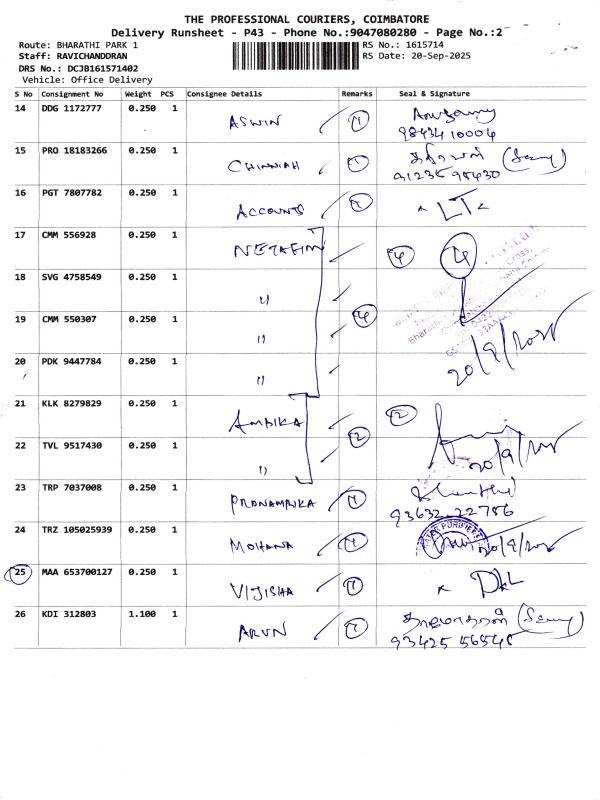 THE PROFESSIONAL COURIERS, COIMBATORE
Delivery Runsheet - P43 - Phone No.:9047080280 - Page No.:2
Route: BHARATHI PARK 1 RS No.: 1615714
Staff: RAVICHANDDRAN RS Date: 20-Sep-2025
DRS No.: DCJB161571402
Vehicle: Office Delivery
S No Consignment No Weight PCS Consignee Details Remarks Seal & Signature
14 DDG 1172777 0.250 1 ASWIN 1
98434 10004
15 PRO 18183266 0.250 1 CHINNIAH 1
16 PGT 7807782 0.250 1 ACCOUNTS 1
17 CMM 556928 0.250 1 NETAFIM 4 4
18 SVG 4758549 0.250 1 "
19 CMM 550307 0.250 1 " 4 20/9/2025
20 PDK 9447784 0.250 1 "
21 KLK 8279829 0.250 1 AMBIKA 2
22 TVL 9517430 0.250 1 " 2 20/9/2025
23 TRP 7037008 0.250 1 PRONAMBIKA 1
93632-22786
24 TRZ 105025939 0.250 1 MOHANA 1 20/9/2025
25 MAA 653700127 0.250 1 VIJISHA 1
26 KDI 312803 1.100 1 ARUN 1
93425 56548